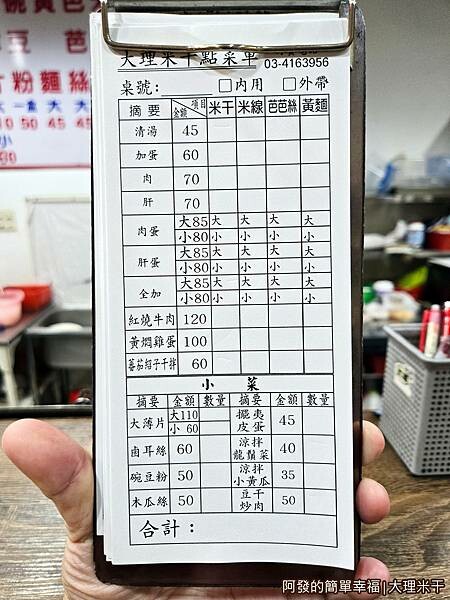 大理米干點采單
03-4163956
桌號： □內用 □外帶
摘要 金額 項目 米干 米線 芭芭絲 黃麵
清湯 45
加蛋 60
肉 70
肝 70
肉蛋 大85 大 大 大 大
小80 小 小 小 小
肝蛋 大85 大 大 大 大
小80 小 小 小 小
全加 大85 大 大 大 大
小80 小 小 小 小
紅燒牛肉 120
黃燜雞蛋 100
蕃茄紹子干拌 60
小菜
摘要 金額 數量 摘要 金額 數量
大薄片 大110 小60 擺夷皮蛋 45
鹵耳絲 60 涼拌龍鬚菜 40
碗豆粉 50 涼拌小黃瓜 35
木瓜絲 50 豆干炒肉 50
合計：
阿發的簡單幸福|大理米干